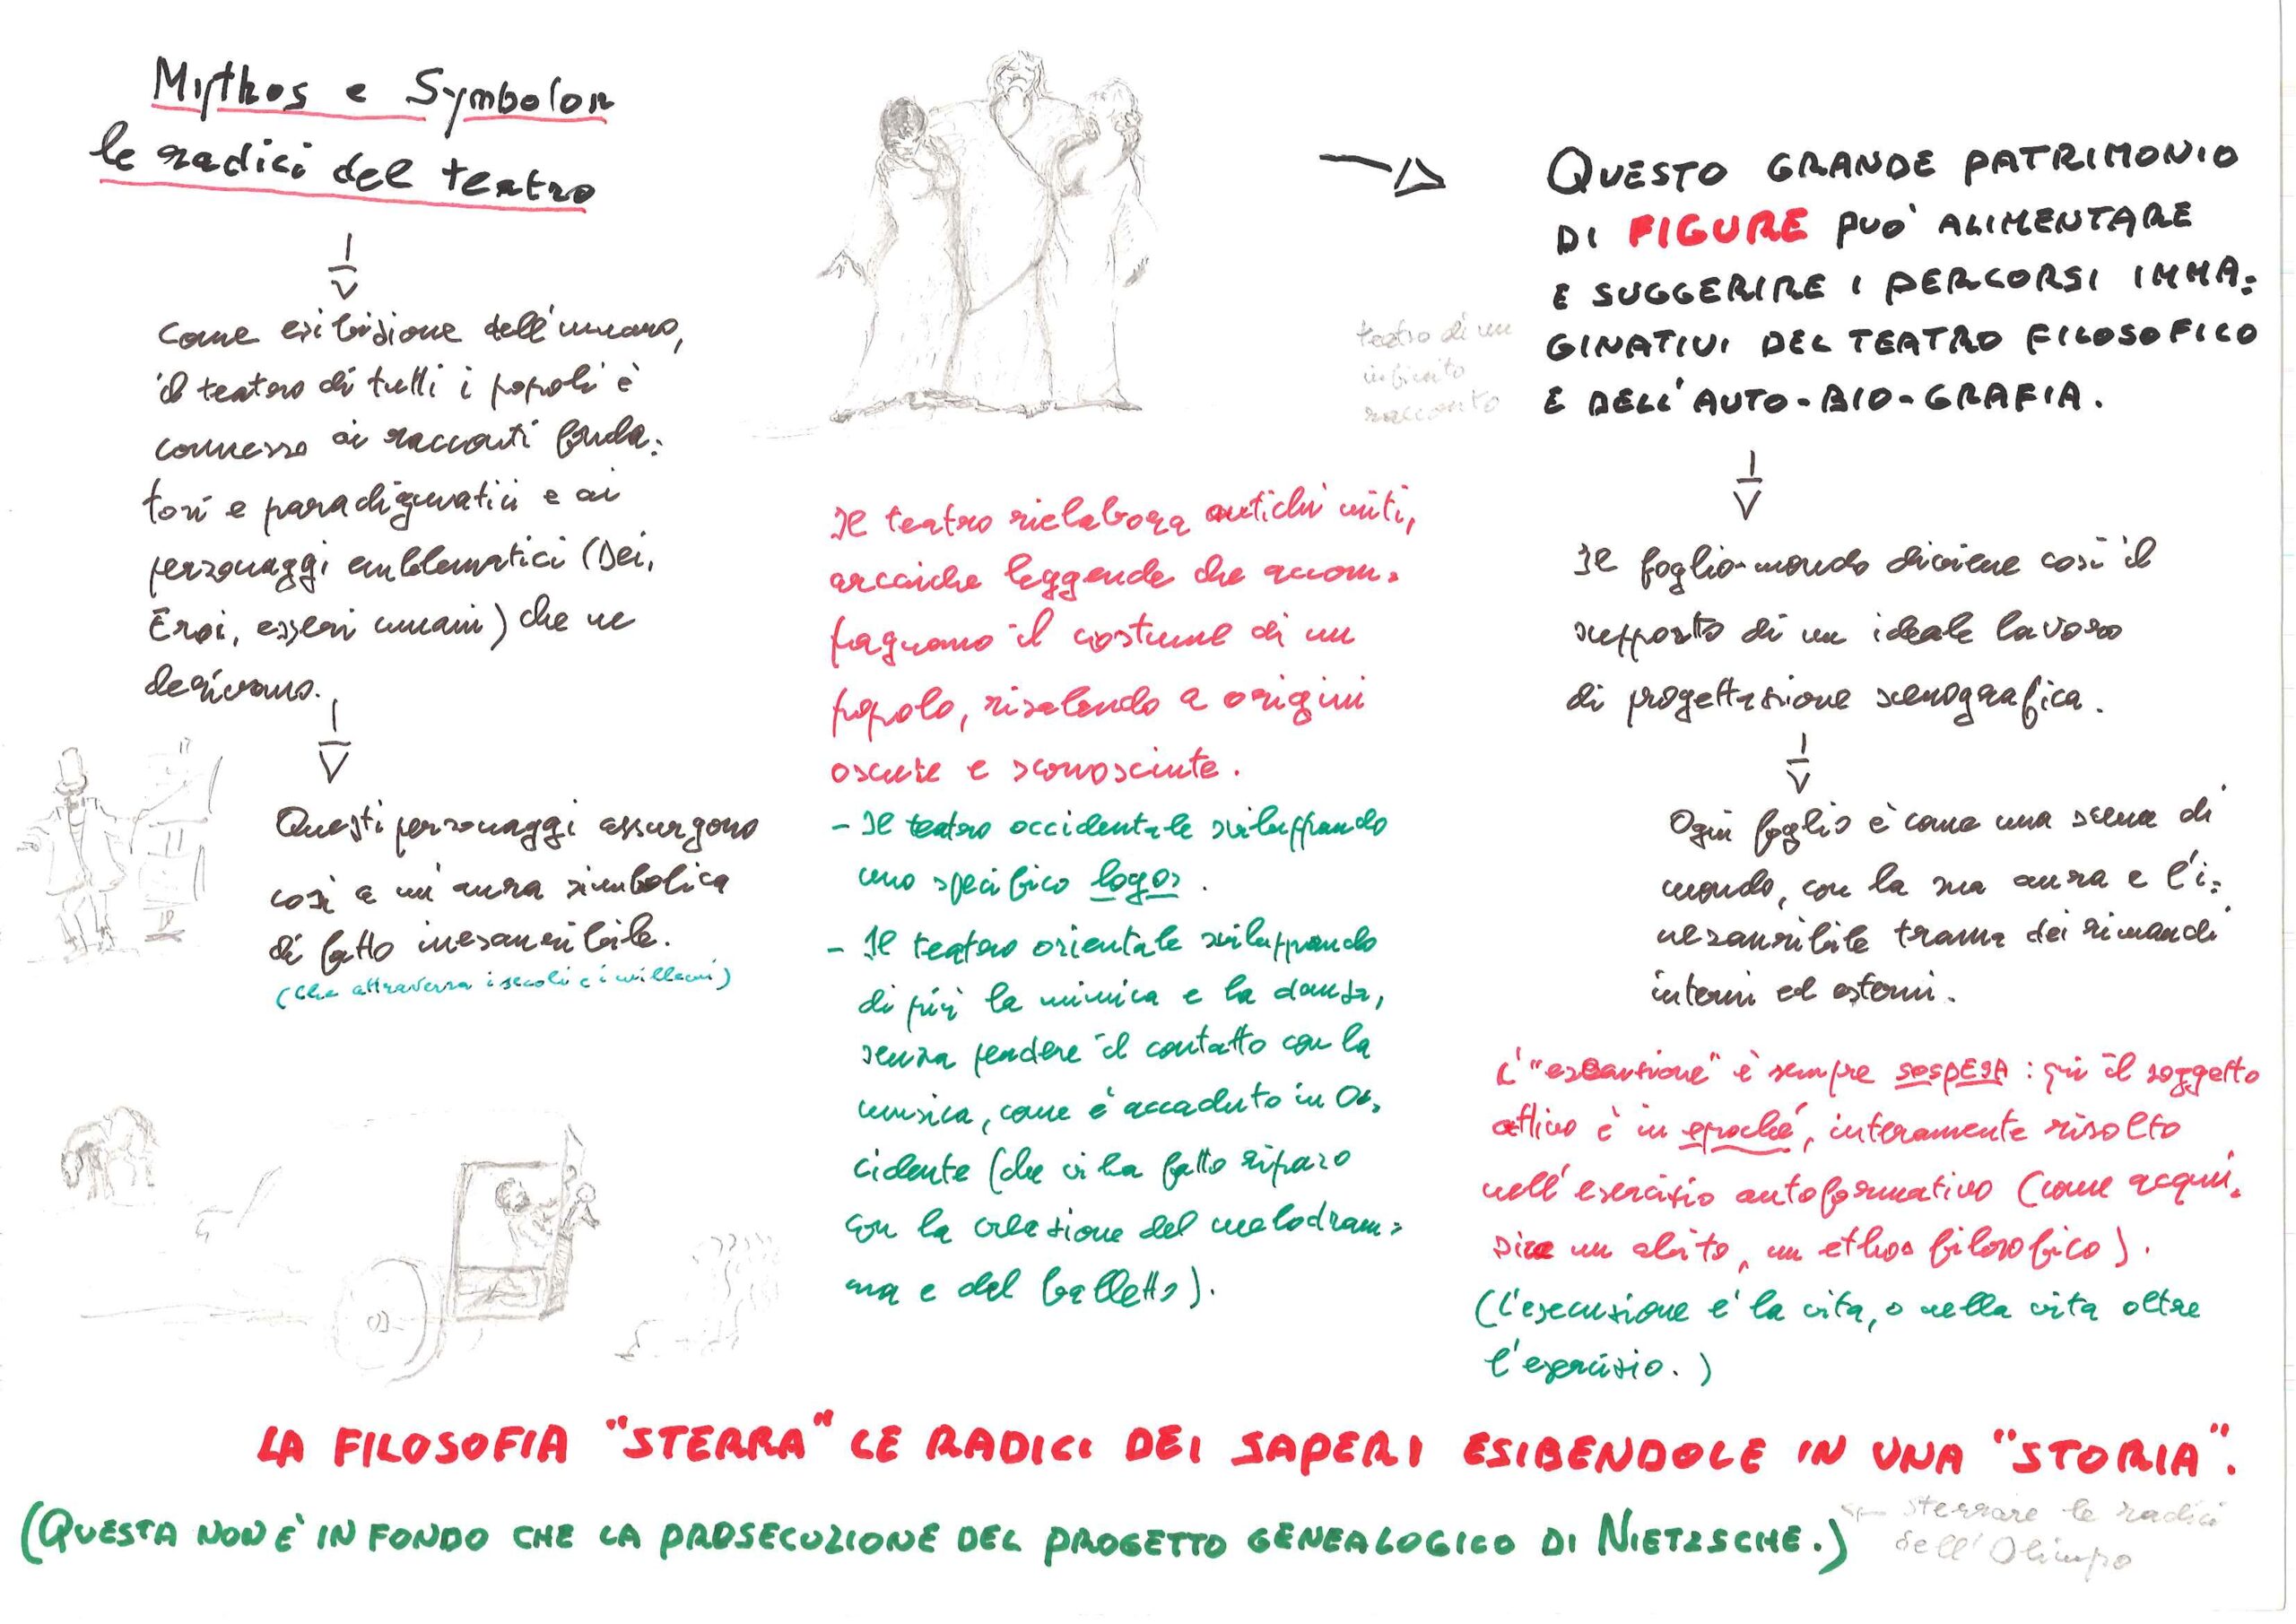 Mythos e Symbolon
le radici del teatro
Come esibizione dell'umano,
il teatro di tutti i popoli è
connesso ai racconti fonda=
tori e paradigmatici e ai
personaggi emblematici (Dei,
Eroi, esseri umani) che ne
derivano.
Questi personaggi assurgono
così a un'aura simbolica
di fatto inesauribile.
(che attraversa i secoli e i millenni)
Il teatro rielabora antichi miti,
arcaiche leggende che accom=
pagnano il costume di un
popolo, risalendo a origini
oscure e sconosciute.
- Il teatro occidentale sviluppando
uno specifico logos.
- Il teatro orientale sviluppando
di più la mimica e la danza,
senza perdere il contatto con la
musica, come è accaduto in Oc=
cidente (che vi ha fatto riparo
con la creazione del melodram=
ma e del balletto).
teatro di un
infinito
racconto
QUESTO GRANDE PATRIMONIO
DI FIGURE PUÒ ALIMENTARE
E SUGGERIRE I PERCORSI IMMA=
GINATIVI DEL TEATRO FILOSOFICO
E DELL'AUTO-BIO-GRAFIA.
Il foglio-mondo diviene così il
supporto di un ideale lavoro
di progettazione scenografica.
Ogni foglio è come una scena di
mondo, con la sua aura e l'i=
nesauribile trama dei rimandi
interni ed esterni.
L'"esecuzione" è sempre SOSPESA: qui il soggetto
attivo è in epoché, interamente risolto
nell'esercizio autoformativo (come acqui=
sire un abito, un ethos filosofico).
(L'esecuzione è la vita, o nella vita oltre
l'esercizio.)
LA FILOSOFIA "STERRA" LE RADICI DEI SAPERI ESIBENDOLE IN UNA "STORIA".
(QUESTA NON È IN FONDO CHE LA PROSECUZIONE DEL PROGETTO GENEALOGICO DI NIETZSCHE.)
sterrare le radici
dell'Olimpo